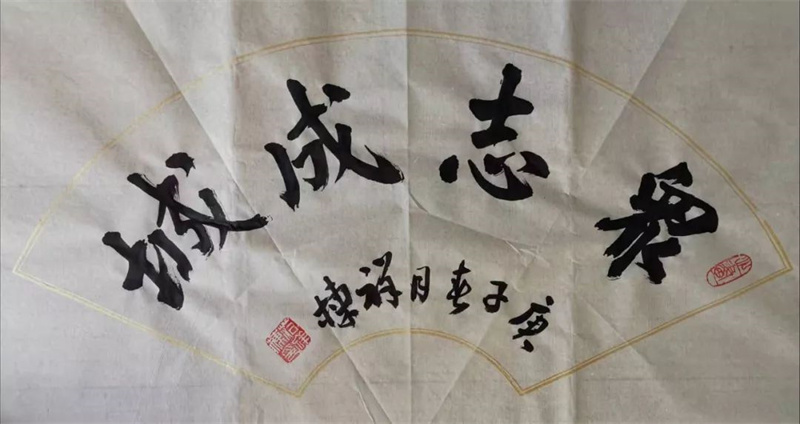 众志成城
庚子春月祥